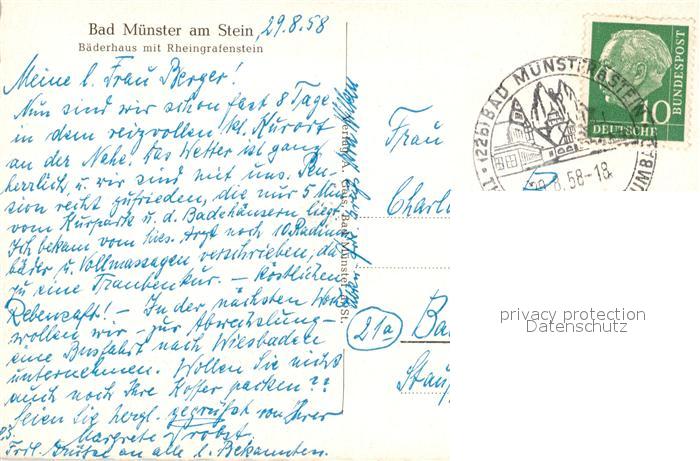 Bad Münster am Stein
29.8.58
Bäderhaus mit Rheingrafenstein
Meine l. Frau Berger!
Nun sind wir schon fast 8 Tage
in dem reizvollen kl. Kurort
an der Nahe. Das Wetter ist ganz
herrlich u. wir sind mit uns. Pen-
sion recht zufrieden, die nur 5 Min
vom Kurpark u. d. Badehäusern liegt.
Ich bekam vom hies. Arzt noch 10 Radium
bäder u. Vollmassagen verschrieben, da
zu eine Traubenkur. – köstlichen
Rebensaft! – In der nächsten Woche
wollen wir – zur Abwechslung –
eine Busfahrt nach Wiesbaden
unternehmen. Wollen Sie nicht
auch noch Ihre Koffer packen??
Seien Sie herzl. gegrüßt von Ihrer
Margrete Probst.
Frdl. Grüße an alle l. Bekannten.
Verlag A. Bad Münster a. St.
Frau
Charl
21a
Ba
Stau
(22b) BAD MÜNSTER A STEIN
29.8.58-18
10
DEUTSCHE
BUNDESPOST
privacy protection
Datenschutz